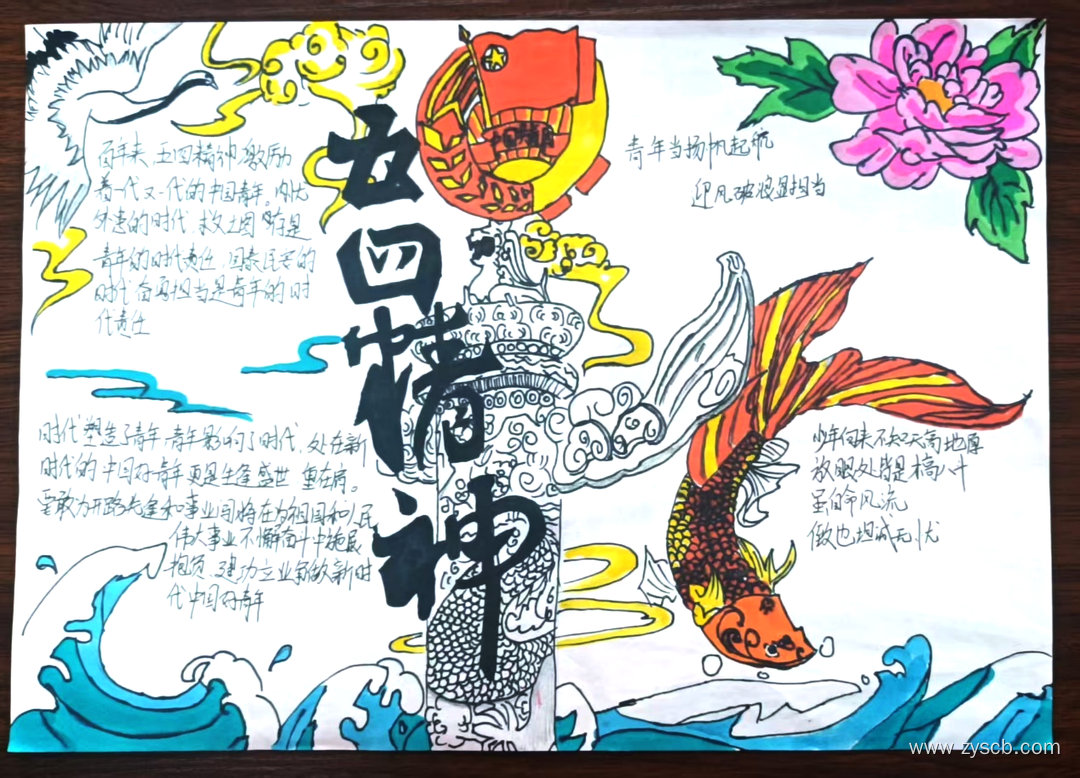 五四精神
中国共青团
百年来,五四精神激励
着一代又一代的中国青年。内忧
外患的时代,救亡图存是
青年的时代责任,国泰民安的
时代奋勇担当是青年的时
代责任
青年当扬帆起航
迎风破浪显担当
时代塑造了青年,青年影响了时代,处在新
时代的中国好青年更是生逢盛世,重在肩。
要敢为开路先
事业
将在为祖国和人民
伟大事业不懈奋斗中施展
抱负,建功立业
做新时
代中国好青年
少年向来不知天高地厚
放眼处皆是
风流
做也坦诚无忧
www.zyscb.com